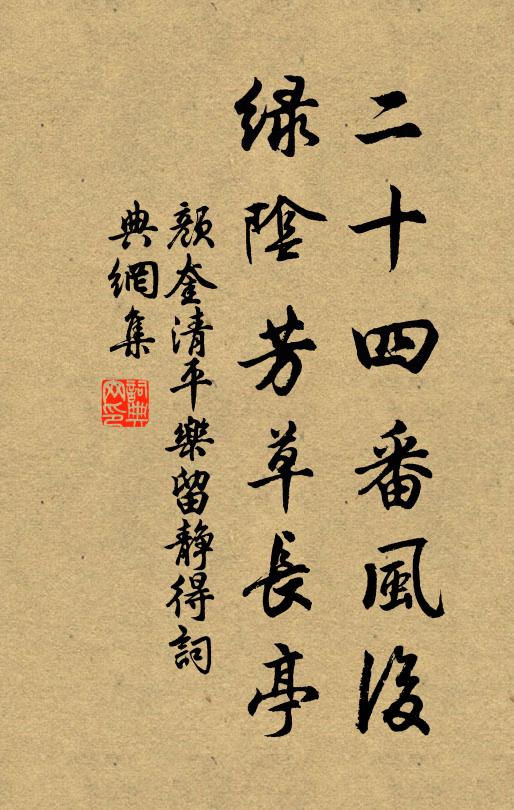 二十四番風後
綠陰芳草長亭
顏奎清平樂留靜得詞
典網集
詞典網印